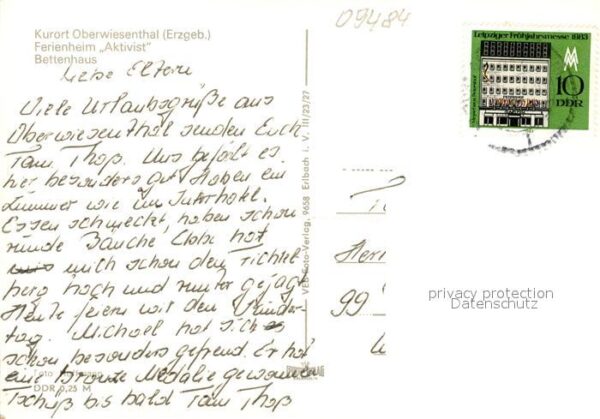 09484
Kurort Oberwiesenthal (Erzgeb.)
Ferienheim „Aktivist"
Bettenhaus
Liebe Eltern
Viele Urlaubsgrüße aus
Oberwiesenthal senden Euch
Uns gefällt es
hier besonders gut Haben ein
Zimmer wie im Interhotel.
Essen schmeckt, haben schon
runde Bäuche
mich schon den Fichtel
berg hoch und runter gejagt
Heute feiern wir den Kinder-
tag. Michael hat sich
schon besonders gefreut. Er hat
eine bronze Medalie gewonnen
Tschüß bis bald
DDR 0,25 M
VEB Foto-Verlag, 9658 Erlbach i. V. III/23/27
Leipziger Frühjahrsmesse 1983
MM
10
DDR
99
privacy protection
Datenschutz